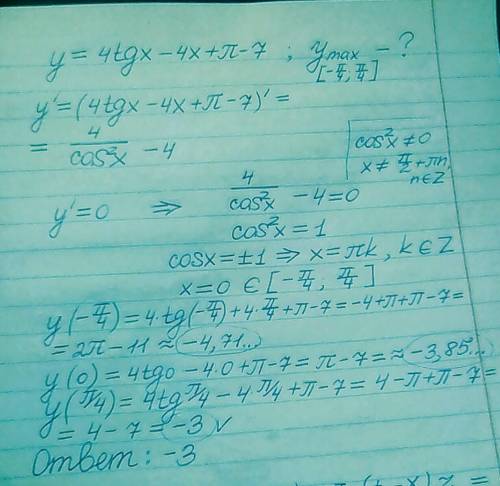 y = 4tgx - 4x + π - 7 ; y max - ?
[-π/4, π/4]
y' = (4tgx - 4x + π - 7)' =
= 4/cos²x - 4
cos²x ≠ 0
x ≠ π/2 + πn,
n ∈ Z
y' = 0 ⇒ 4/cos²x - 4 = 0
cos²x = 1
cosx = ±1 ⇒ x = πk, k ∈ Z
x = 0 ∈ [-π/4, π/4]
y(-π/4) = 4·tg(-π/4) + 4·π/4 + π - 7 = -4 + π + π - 7 =
= 2π - 11 ≈ -4,71...
y(0) = 4tg0 - 4·0 + π - 7 = π - 7 = ≈ -3,85...
y(π/4) = 4tg π/4 - 4 π/4 + π - 7 = 4 - π + π - 7 =
= 4 - 7 = -3 v
Ответ: -3